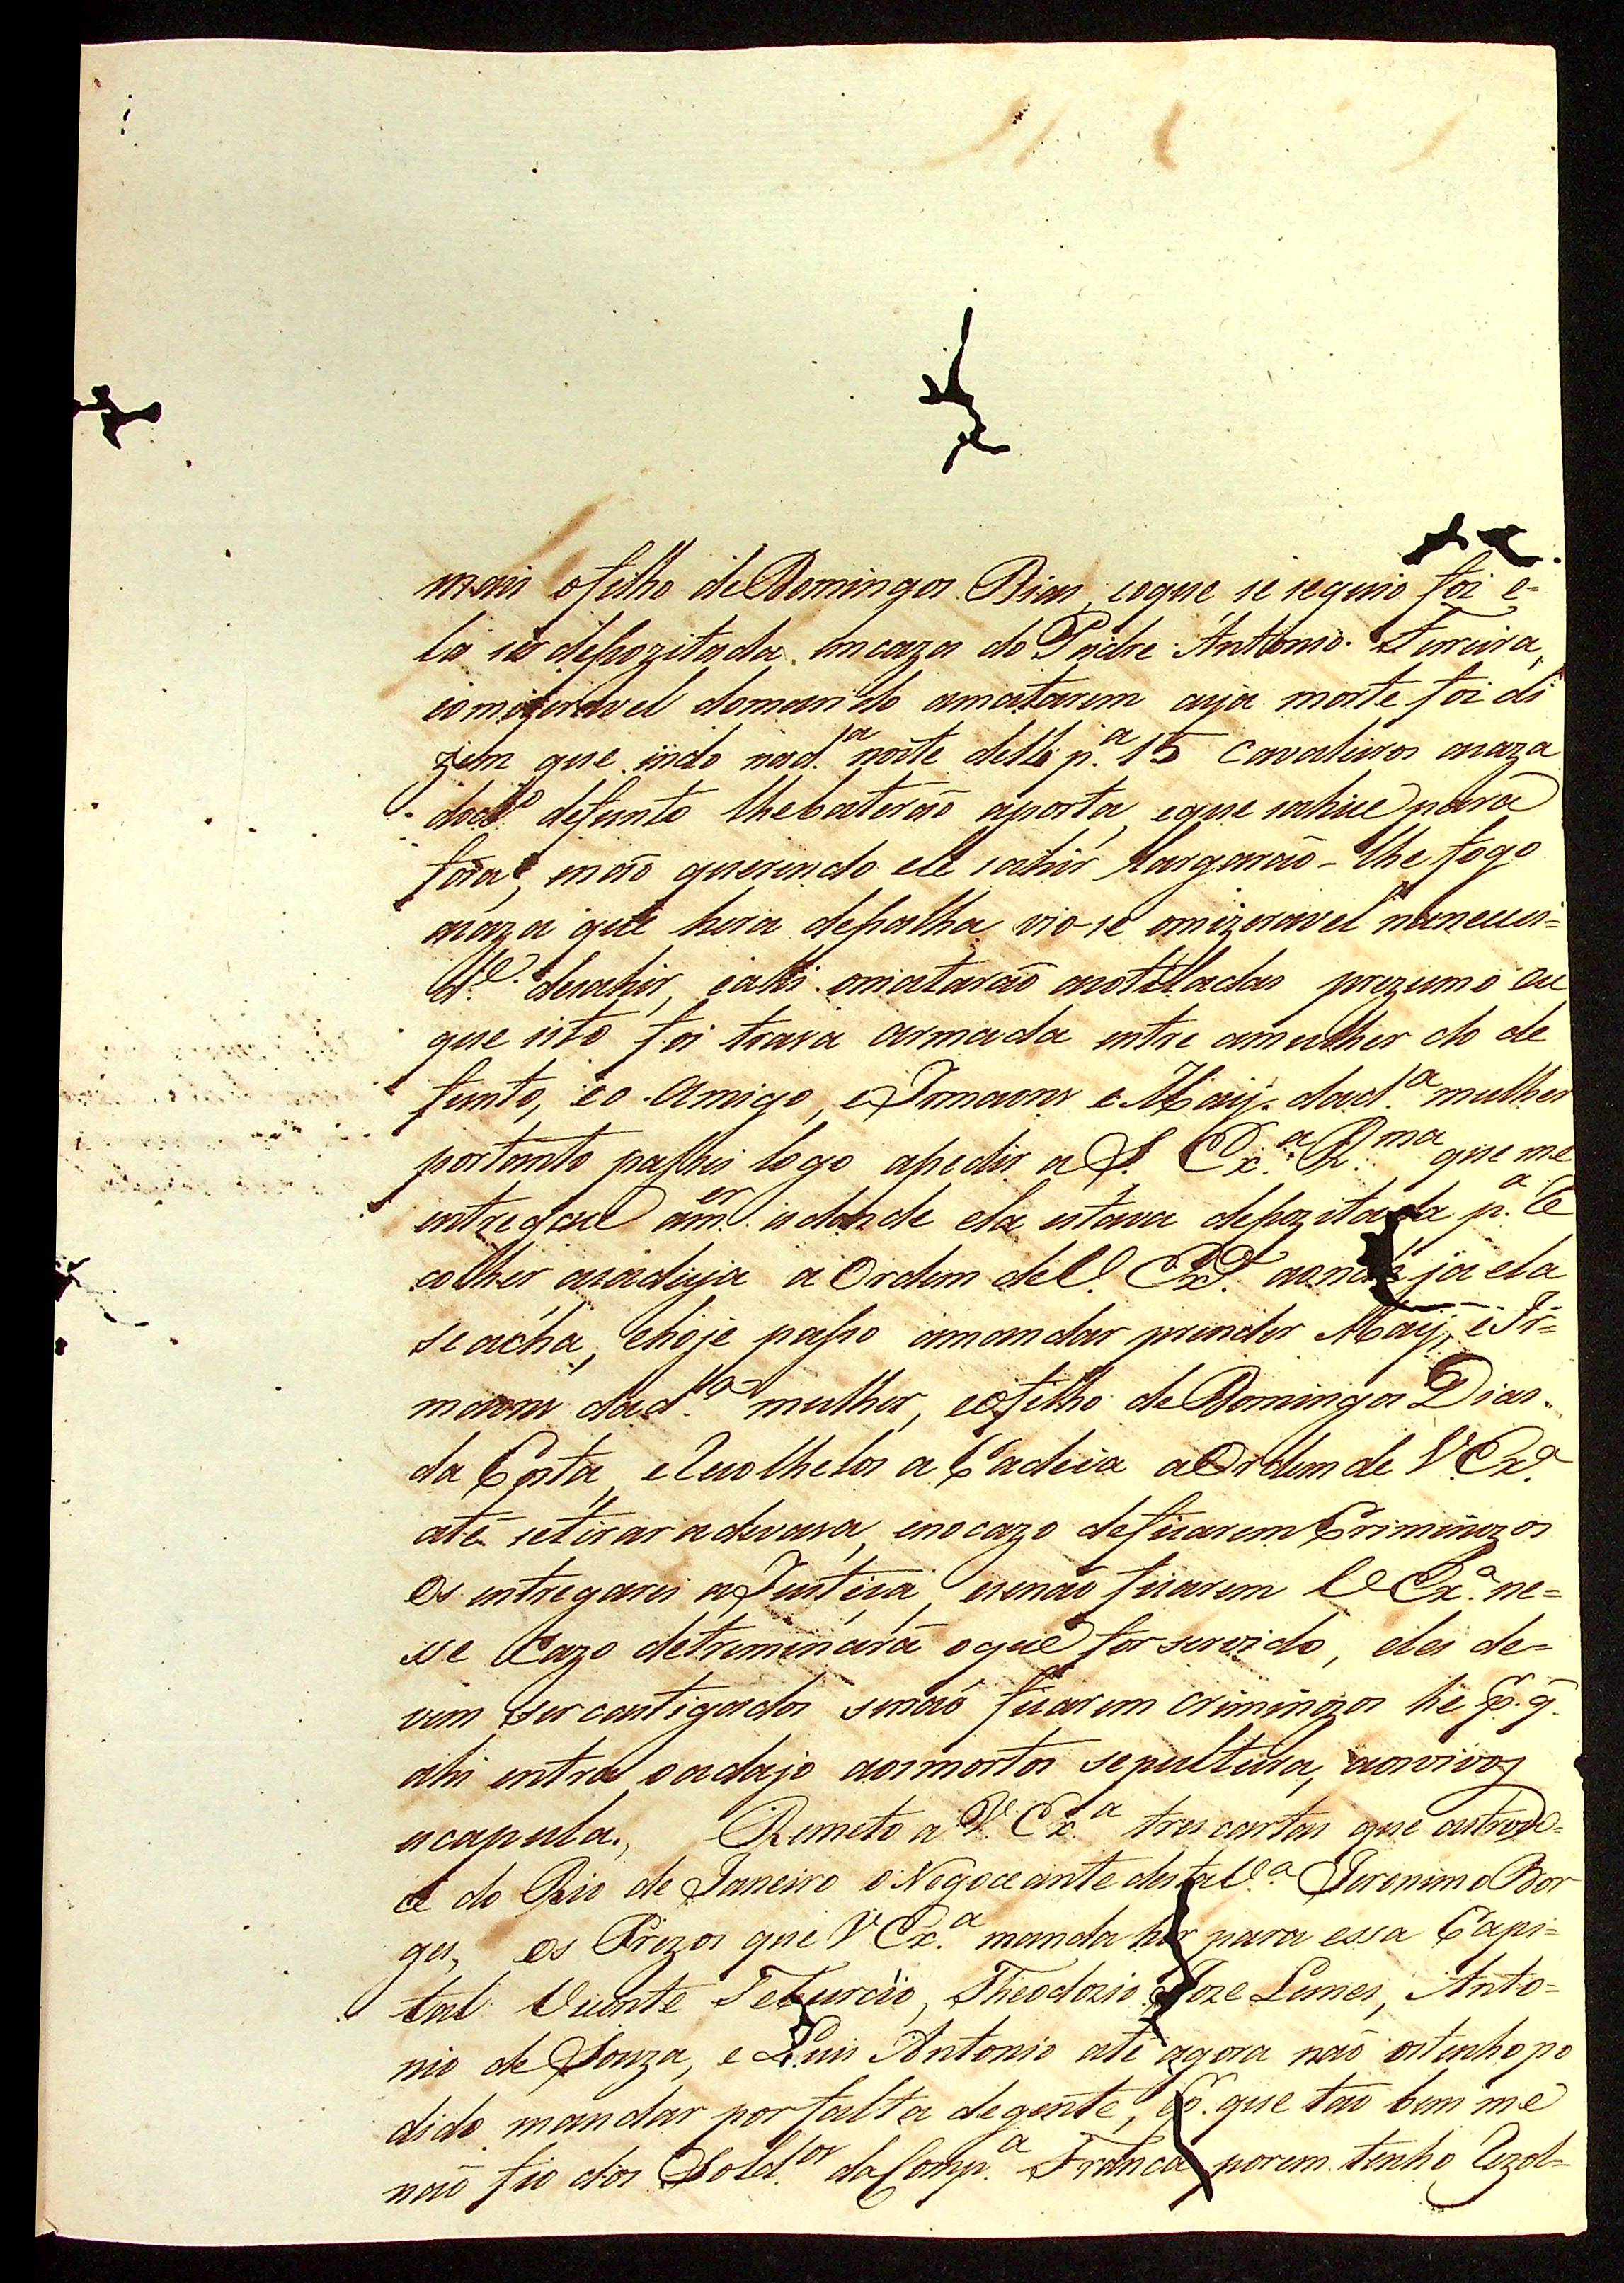 mais ofilho de Domingos Dias, eoque se seguio foi e-
la ir depozitada em caza do Padre Antonio Ferreira,
eomizeravel domarido amatarem cuja morte foi di
zem que indo nad.ª noite de 14 p.ª 15 cavaleiros acaza
dod.º defunto lhebaterão aporta, eque sahice para
fora, enão querendo ele sahir largarão-lhe fogo
acaza que hera depalha vio-se omizeravel nanececi-
d.e desahir, eahi omatarão acotiladas prezumo eu
que isto foi traça armada entre amulher do de
funto, eo Amigo, e Irmaons e Maij dad.ª mulher
portanto passei logo apedir a S. Ex.ª R.ma que me
entregace am.er adonde ela estava depozitada p.ª Re
colher acadeya a Ordem de V. Ex.ª aonde ja ela
se acha, ehoje passo amandar prender Maij, e Ir-
maons dad.ª mulher, eofilho de Domingos Dias
da Costa, eRecolhelos a Cadeia a Ordem de V. Ex.ª
até setirar adevaça, enocazo deficarem Criminozos
os entregarei a Justiça, esenão ficarem V Ex.ª ne-
sse cazo detreminará oque for servido, eles de-
vem ser castigados senão ficarem criminozos he p. q.
ahi entra oadajo aosmortos sepultura, aosvivos
acapula., Remeto a V. Ex.ª tres cartas que astrou-
ce do Rio de Janeiro o Negoceante desta V.ª Jeronimo Bor
ges, os Prezos que V Ex.ª manda hir para essa Capi-
tal Vicente Teburcio, Theodozio Joze Lemes, Anto-
nio de Souza, e Luis Antonio até agora não ostenhopo
dido mandar porfalta degente, p. que tão bem me
não fio dos Sold.os da Comp.ª Franca porem tenho Rezol-